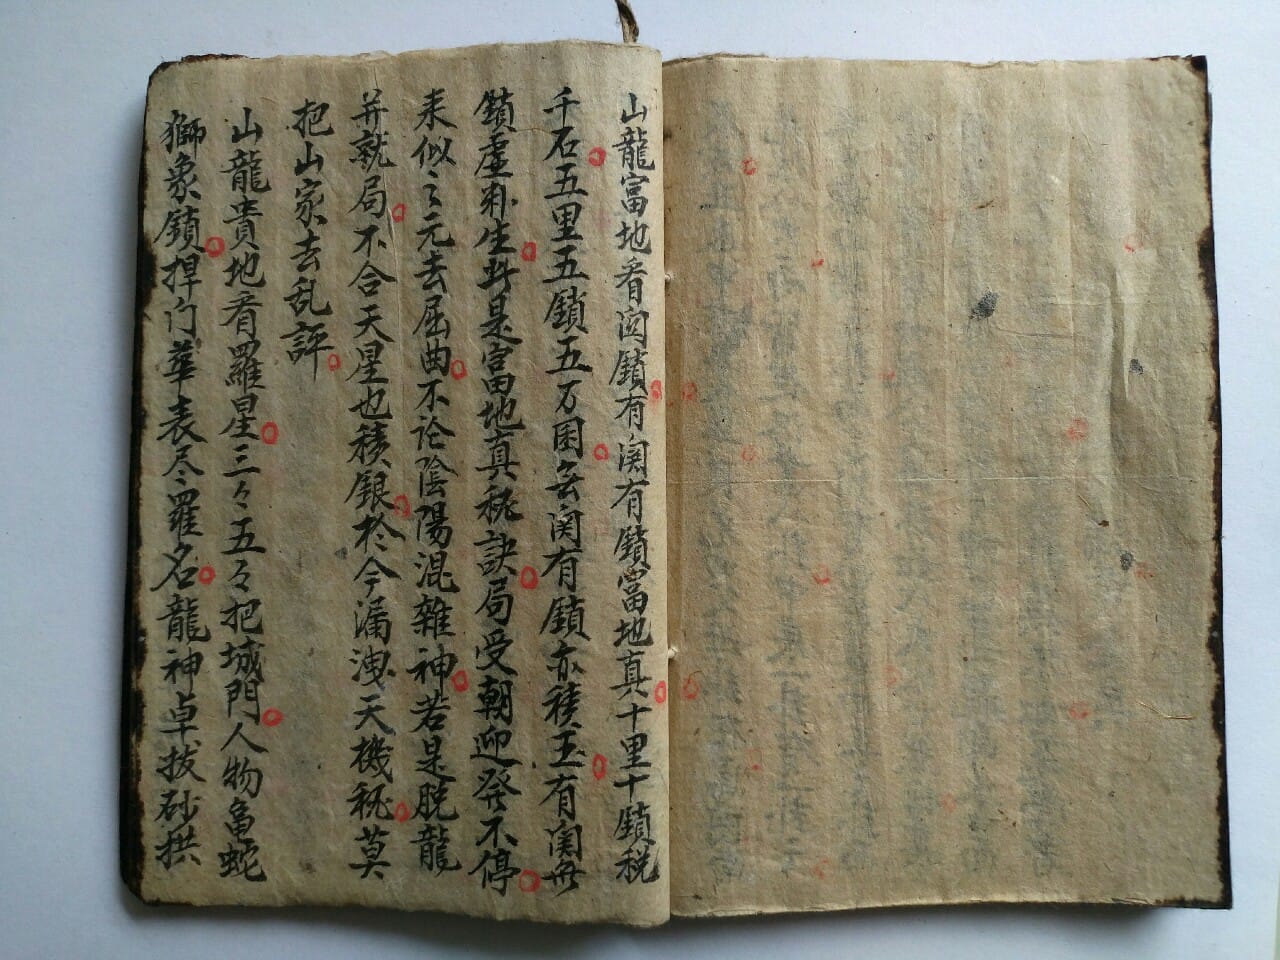 山龍富地看関鎖有関有鎖富地真十里十鎖税
千石五里五鎖五万囷無関有鎖亦積玉有関無
鎖虛利生此是富田地真秘訣局受朝迎発不停
来似々元去屈曲不论陰陽混雜神若是脱龍
并就局不合天星也積銀於今漏洩天機秘莫
把山家去乱評
山龍貴地看羅星三々五々把城門人物亀蛇
獅象鎖捍门華表尽羅名龍神卓拔砂拱